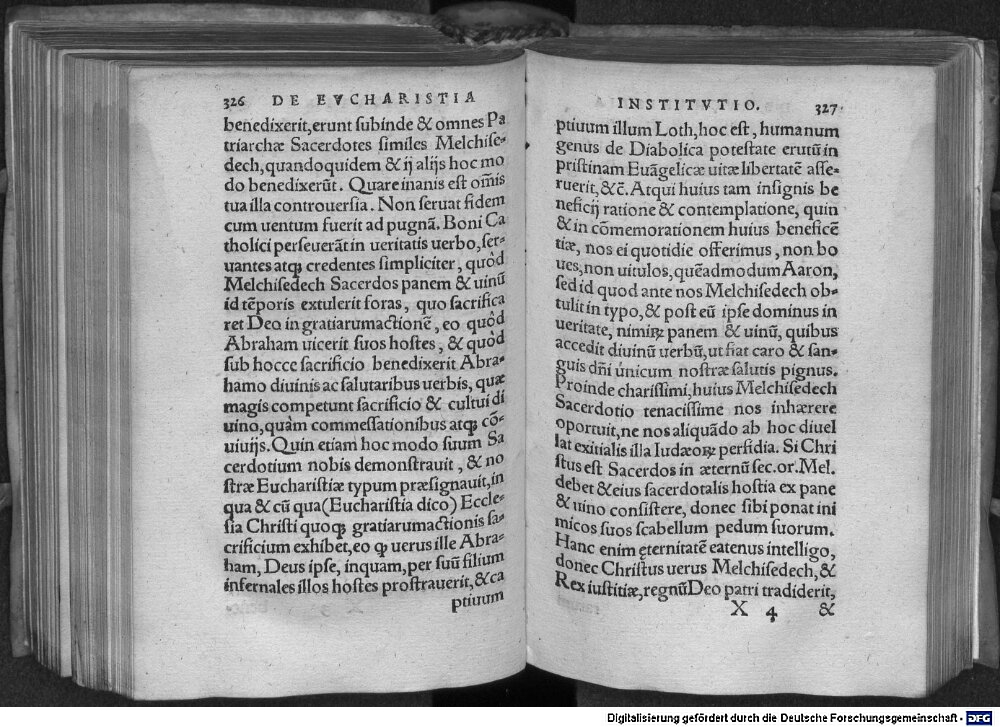 326 DE EVCHARISTIA
benedixerit, erunt subinde & omnes Pa
triarchæ Sacerdotes similes Melchise-
dech, quandoquidem & ij alijs hoc mo
do benedixerūt. Quare inanis est oīnis
tua illa controuersia. Non seruat fidem
cum uentum fuerit ad pugnā. Boni Ca
tholici perseuerāt in ueritatis uerbo, ser-
uantes atqꝫ credentes simpliciter, quòd
Melchisedech Sacerdos panem & uinū
id tēporis extulerit foras, quo sacrifica
ret Deo in gratiarumactionē, eo quòd
Abraham uicerit suos hostes, & quòd
sub hocce sacrificio benedixerit Abra-
hamo diuinis ac salutaribus uerbis, quæ
magis competunt sacrificio & cultui di
uino, quàm commessationibus atqꝫ cō-
uiuijs. Quin etiam hoc modo suum Sa
cerdotium nobis demonstrauit, & no
stræ Eucharistiæ typum præsignauit, in
qua & cū qua (Eucharistia dico) Eccle-
sia Christi quoqꝫ gratiarumactionis sa-
crificium exhibet, eo ꝙ uerus ille Abra-
ham, Deus ipse, inquam, per suū filium
infernales illos hostes prostrauerit, & ca
ptiuum
INSTITVTIO. 327
ptiuum illum Loth, hoc est, humanum
genus de Diabolica potestate erutū in
pristinam Euāgelicæ uitæ libertatē asse-
ruerit, &c̄. Atqui huius tam insignis be
neficij ratione & contemplatione, quin
& in cōmemorationem huius beneficē
tiæ, nos ei quotidie offerimus, non bo
ues, non uitulos, quēadmodum Aaron,
sed id quod ante nos Melchisedech ob-
tulit in typo, & post eū ipse dominus in
ueritate, nimiꝝ panem & uinū, quibus
accedit diuinū uerbū, ut fiat caro & san-
guis dñi únicum nostræ salutis pignus.
Proinde charissimi, huius Melchisedech
Sacerdotio tenacissime nos inhærere
oportuit, ne nos aliquādo ab hoc diuel
lat exitialis illa Iudæoꝝ perfidia. Si Chri
stus est Sacerdos in æternū sec. or. Mel.
debet & eius sacerdotalis hostia ex pane
& uino consistere, donec sibi ponat ini
micos suos scabellum pedum suorum.
Hanc enim ęternitatē eatenus intelligo,
donec Christus uerus Melchisedech, &
Rex iustitiæ, regnū Deo patri tradiderit,
X 4 &
Digitalisierung gefördert durch die Deutsche Forschungsgemeinschaft - DFG